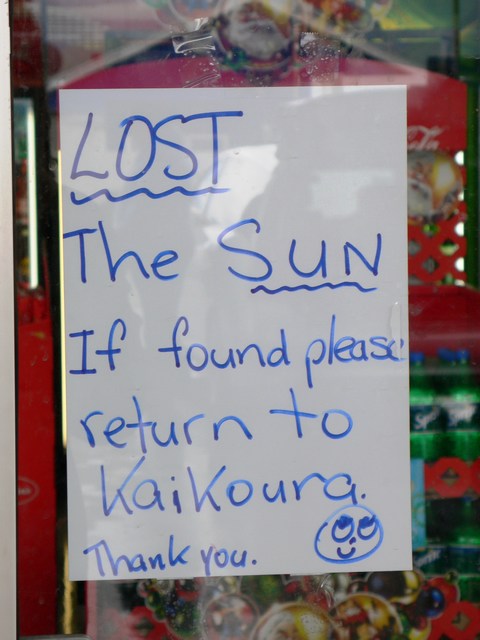 LOST
The SUN
If found please
return to
Kaikoura.
Thank you.
Coca